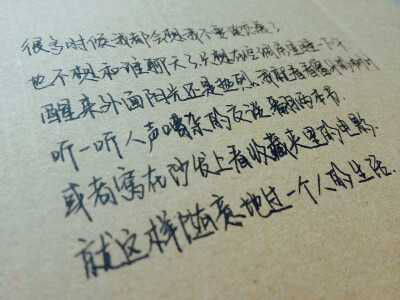 很多时候我都会想我不要再恋爱了
也不想和谁聊天了只想在空调房里睡一下午
醒来外面阳光还是热烈.我就看看窗外的
听一听人声嘈杂的夜说 翻两本书.
或者窝在沙发上看收藏夹里的电影.
就这样随意地过一个人的生活.